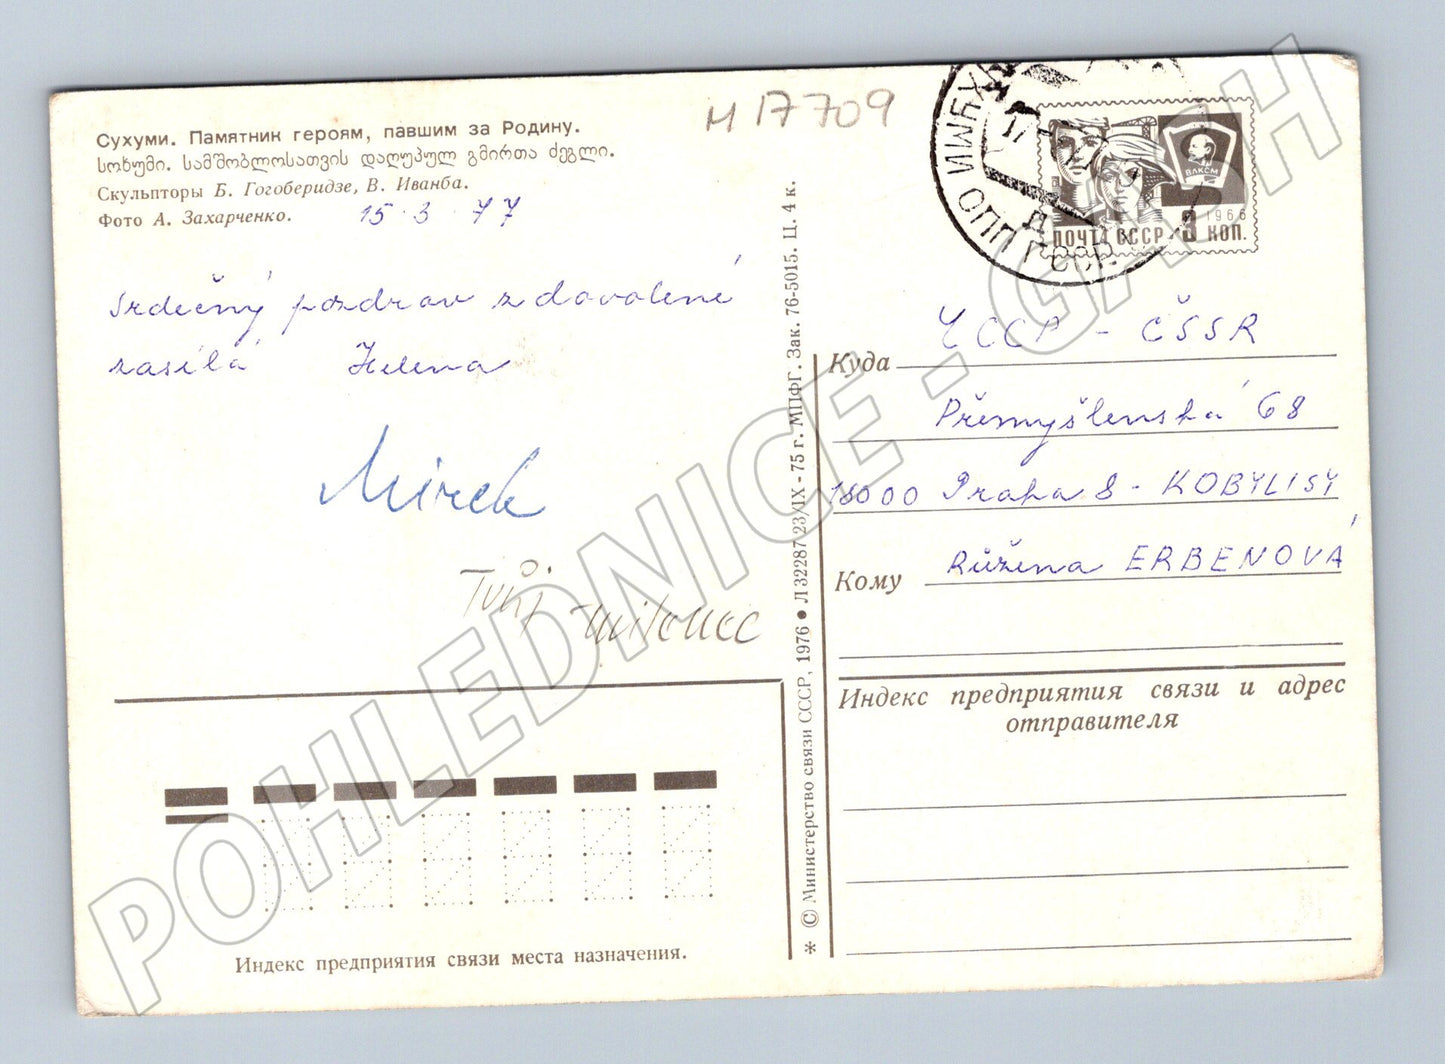 Сухуми. Памятник героям, павшим за Родину.
სოხუმი. სამშობლოსათვის დაღუპულ გმირთა ძეგლი.
Скульпторы Б. Гогоберидзе, В. Иванба.
Фото А. Захарченко.
15.3.77
И 17709
Srdečný pozdrav z dovolené
zasílá Helena
Mirek
Tvůj milenec
Индекс предприятия связи места назначения.
* © Министерство связи СССР, 1976 • Л 32287 23/IX - 75 г. МПФГ. Зак. 76-5015. Ц. 4 к.
ВЛКСМ
1966
ПОЧТА СССР 3 КОП.
СУХУМИ ОПП Г ССР
17
Д
Куда ЧССР - ČSSR
Přemyšlenská 68
18000 Praha 8 - KOBYLISY
Кому Růžena ERBENOVÁ
Индекс предприятия связи и адрес
отправителя
POHLEDNICE - GASH